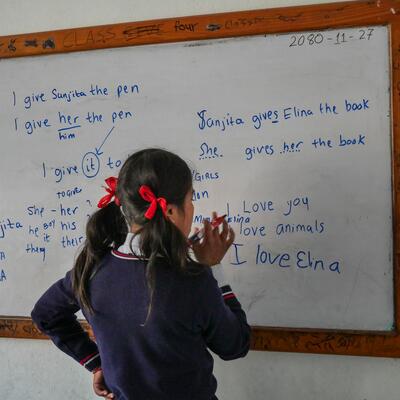 CLASS four CLASSES
2080-11-27
I give Sanjita the pen
I give her the pen
him
I give it to
to GIVE
She - her
he BOY his
it their
them
Sanjita gives Elina the book
She gives her the book
GIRLS
Elina
I Love yoy
love animals
I love Elina